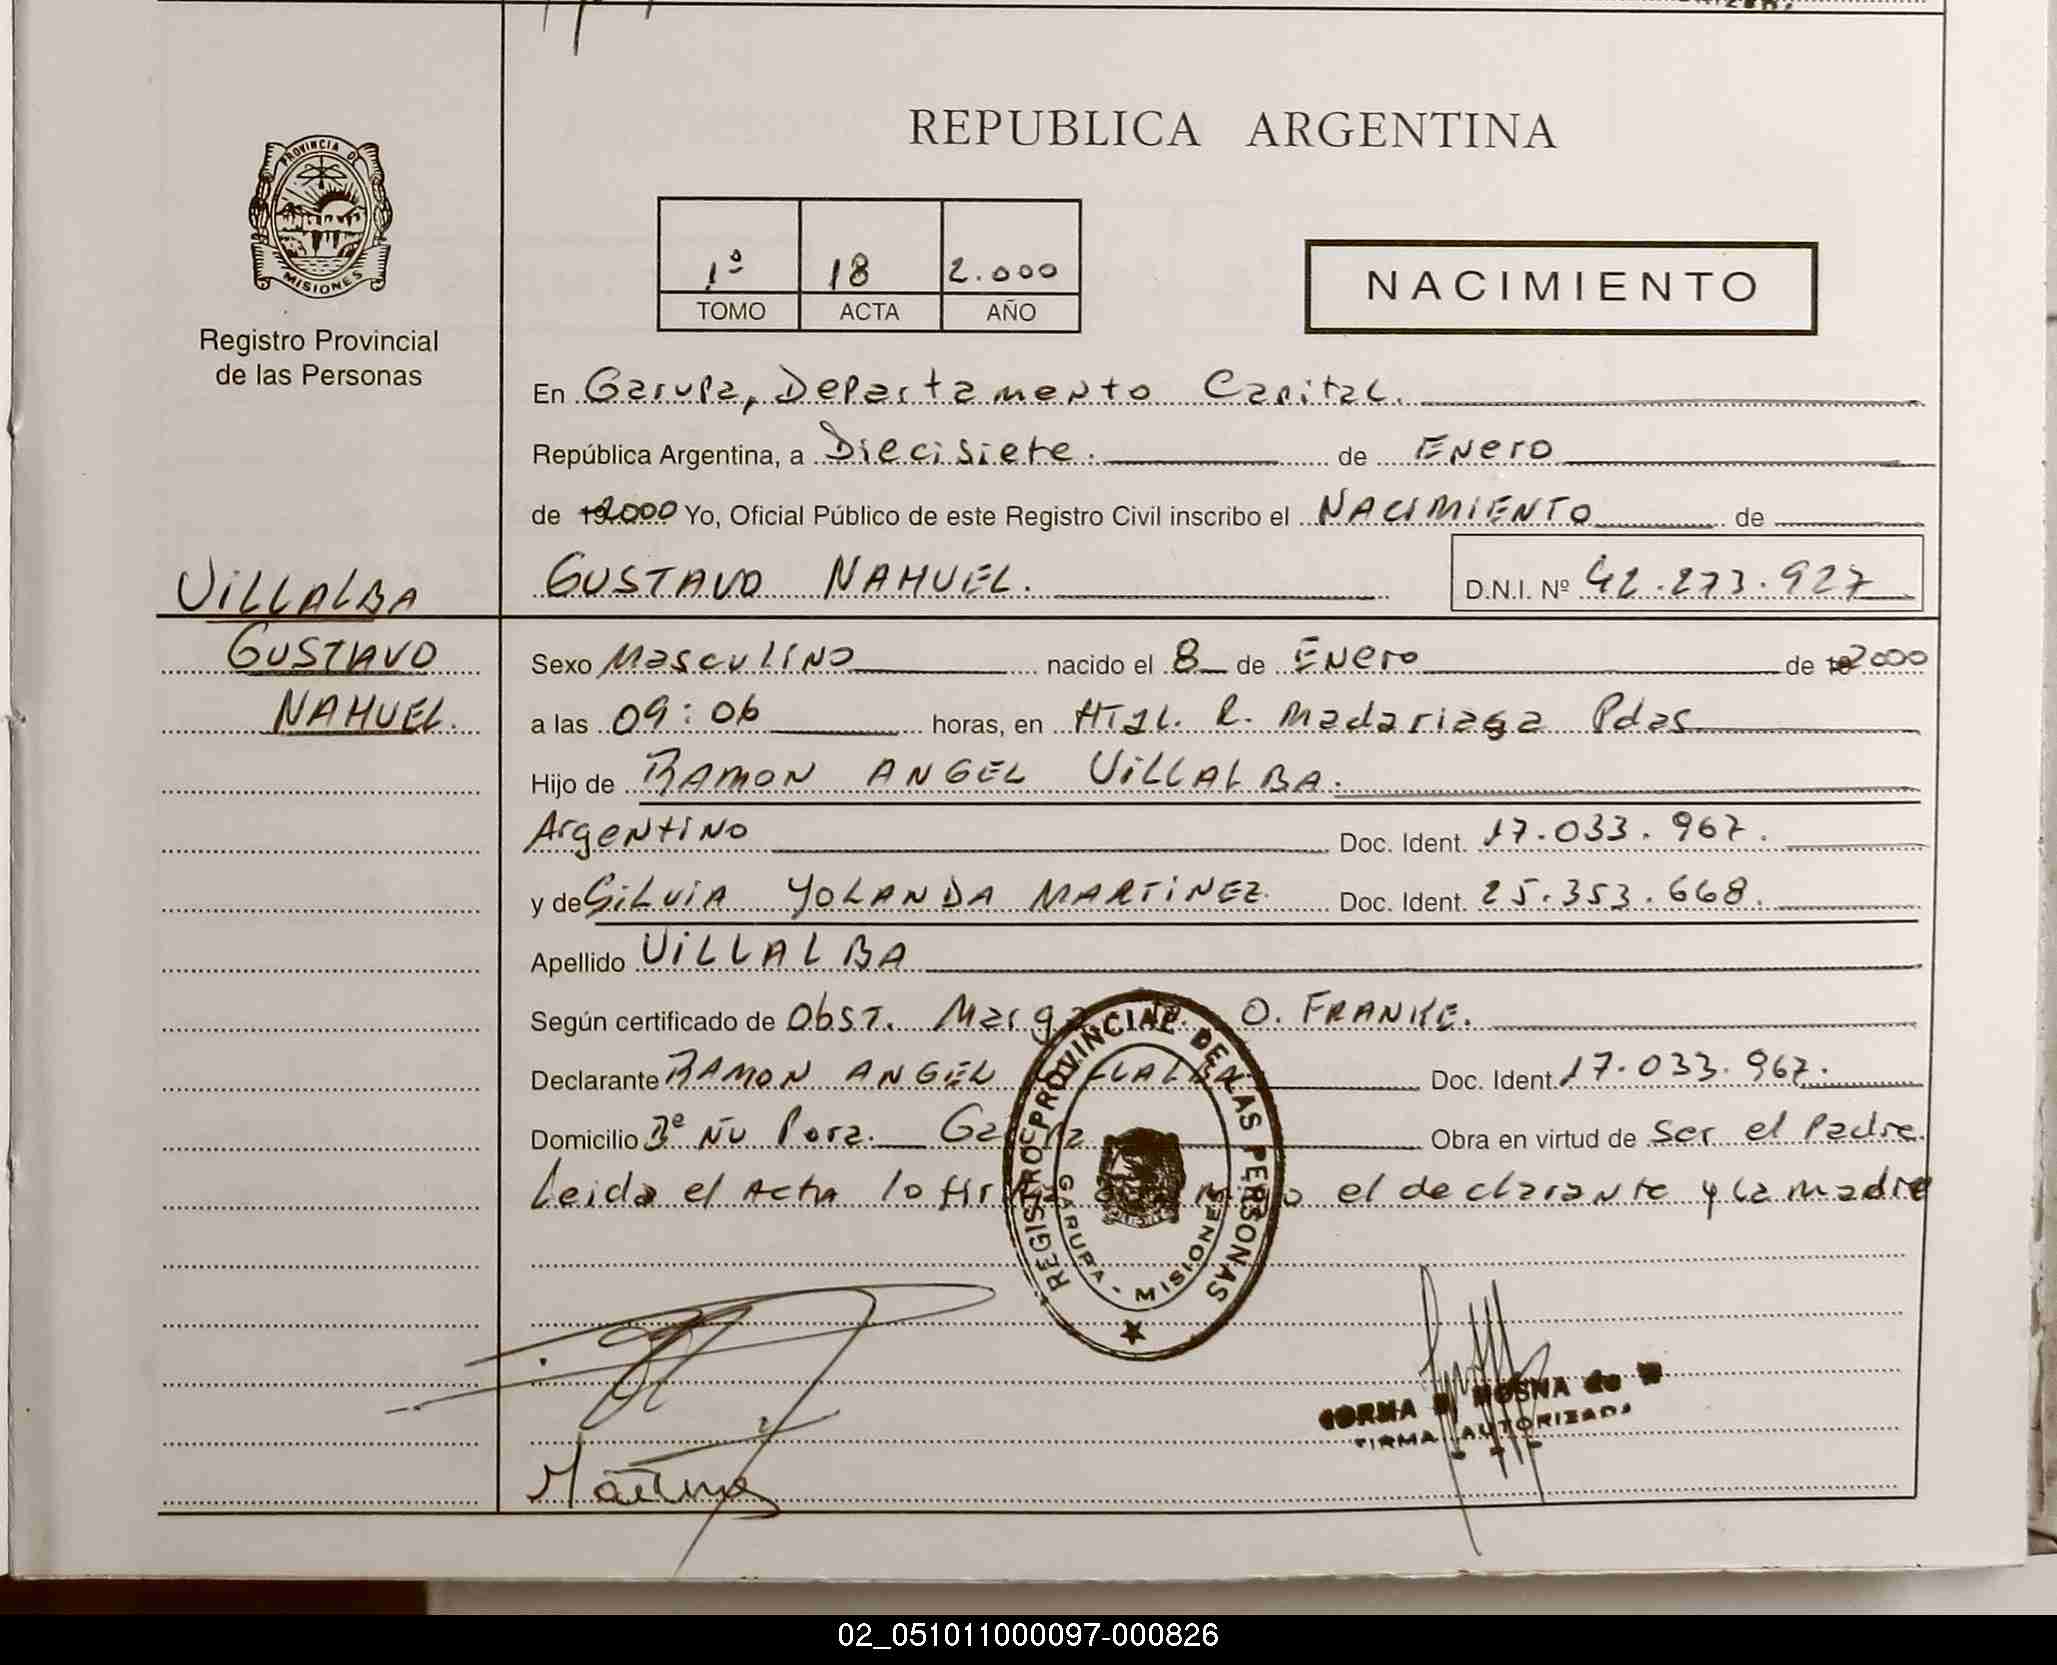 REPUBLICA ARGENTINA
PROVINCIA DE
MISIONES
Registro Provincial
de las Personas
1º 18 2.000
TOMO ACTA AÑO
NACIMIENTO
En Garupa, Departamento Capital.
República Argentina, a Diecisiete. de Enero
de 2000 Yo, Oficial Público de este Registro Civil inscribo el NACIMIENTO de
GUSTAVO NAHUEL. D.N.I. Nº 42.273.927
VILLALBA
GUSTAVO
NAHUEL.
Sexo Masculino nacido el 8 de Enero de 2000
a las 09:06 horas, en R. Madariaga Pdas
Hijo de RAMON ANGEL VILLALBA.
Argentino Doc. Ident. 17.033.967.
y de SILVIA YOLANDA MARTINEZ. Doc. Ident. 25.353.668.
Apellido VILLALBA
Según certificado de Obst. O. FRANKE.
Declarante RAMON ANGEL VILLALBA Doc. Ident. 17.033.967.
Domicilio Bº Ñu Pora. Garupa Obra en virtud de ser el Padre.
Leida el Acta lo el declarante y la madre
REGISTRO PROVINCIAL DE LAS PERSONAS
GARUPA - MISIONES
NOSNA de
FIRMA AUTORIZADA
02_051011000097-000826